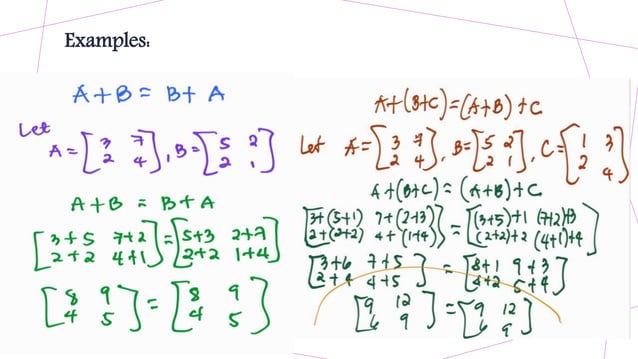 Examples:
A+B = B+A
Let
A = [3 7
2 4], B = [5 2
2 1]
A+B = B+A
[3+5 7+2
2+2 4+1] = [5+3 2+7
2+2 1+4]
[8 9
4 5] = [8 9
4 5]
A+(B+C)=(A+B)+C
Let A=[3 7
2 4], B=[5 2
2 1], C=[1 3
2 4]
A+(B+C) = (A+B)+C
[3+(5+1) 7+(2+3)
2+(2+2) 4+(1+4)] = [(3+5)+1 (7+2)+3
(2+2)+2 (4+1)+4]
[3+6 7+5
2+4 4+5] = [8+1 9+3
4+2 5+4]
[9 12
6 9] = [9 12
6 9]